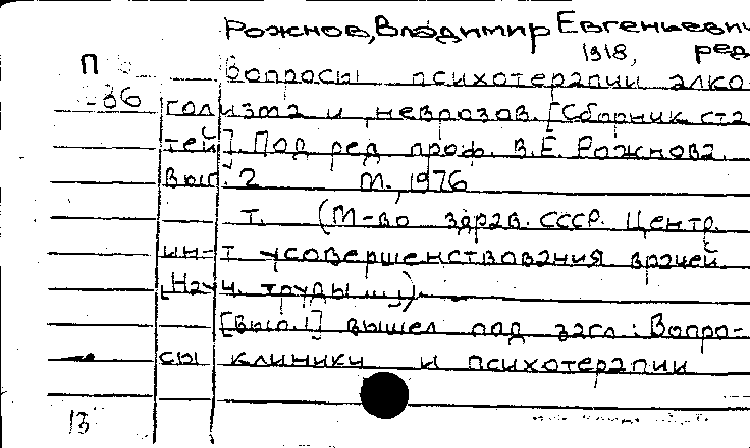 Рожнов, Владимир Евгеньеви
1918, ред
П
Вопросы психотерапии алко
-36
голизма и неврозов. [Сборник ста
тей]. Под ред проф. В.Е. Рожнова.
Вып. 2 М., 1976
т. (М-во здрав. СССР. Центр.
ин-т усовершенствования врачей
Науч. труды ...)
[Вып.1] вышел под загл: Вопро-
сы клиники и психотерапии
13